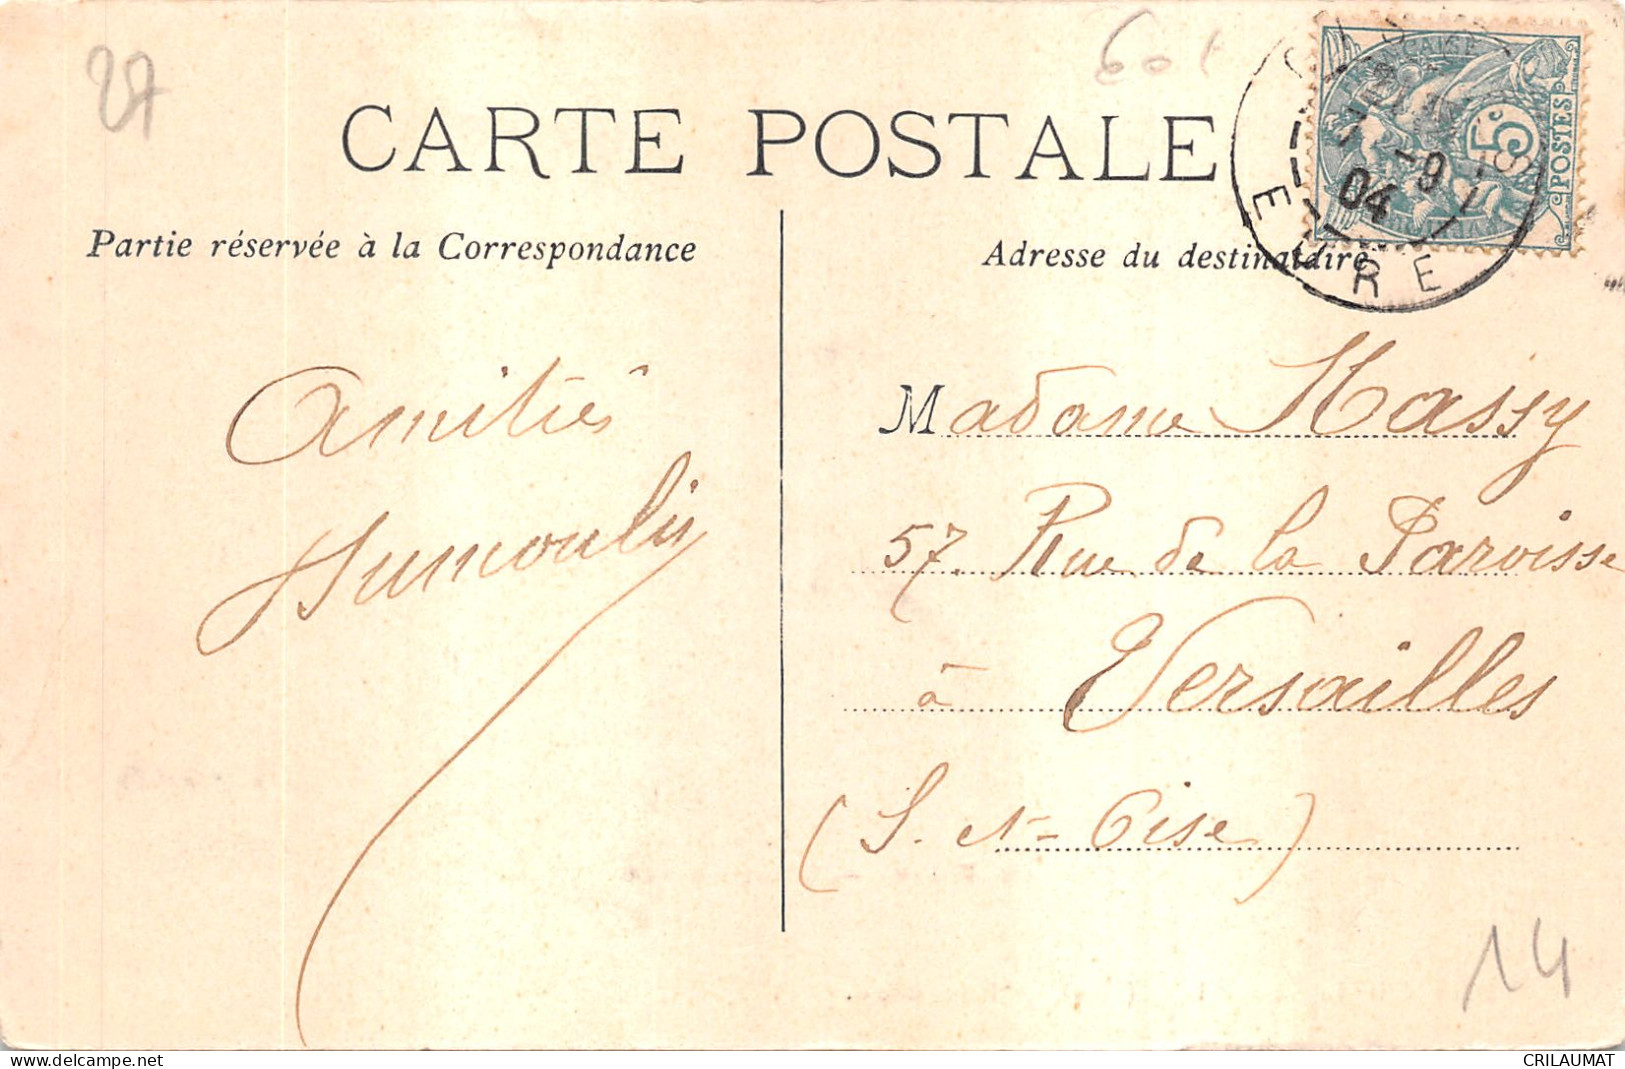 27
CARTE POSTALE
5c
POSTES
-9
04
EURE
Partie réservée à la Correspondance
Adresse du destinataire
Amitiés
Dumoulin
Madame Massy
57. Rue de la Paroisse
à Versailles
(S. et-Oise)
14
www.delcampe.net
CRILAUMAT